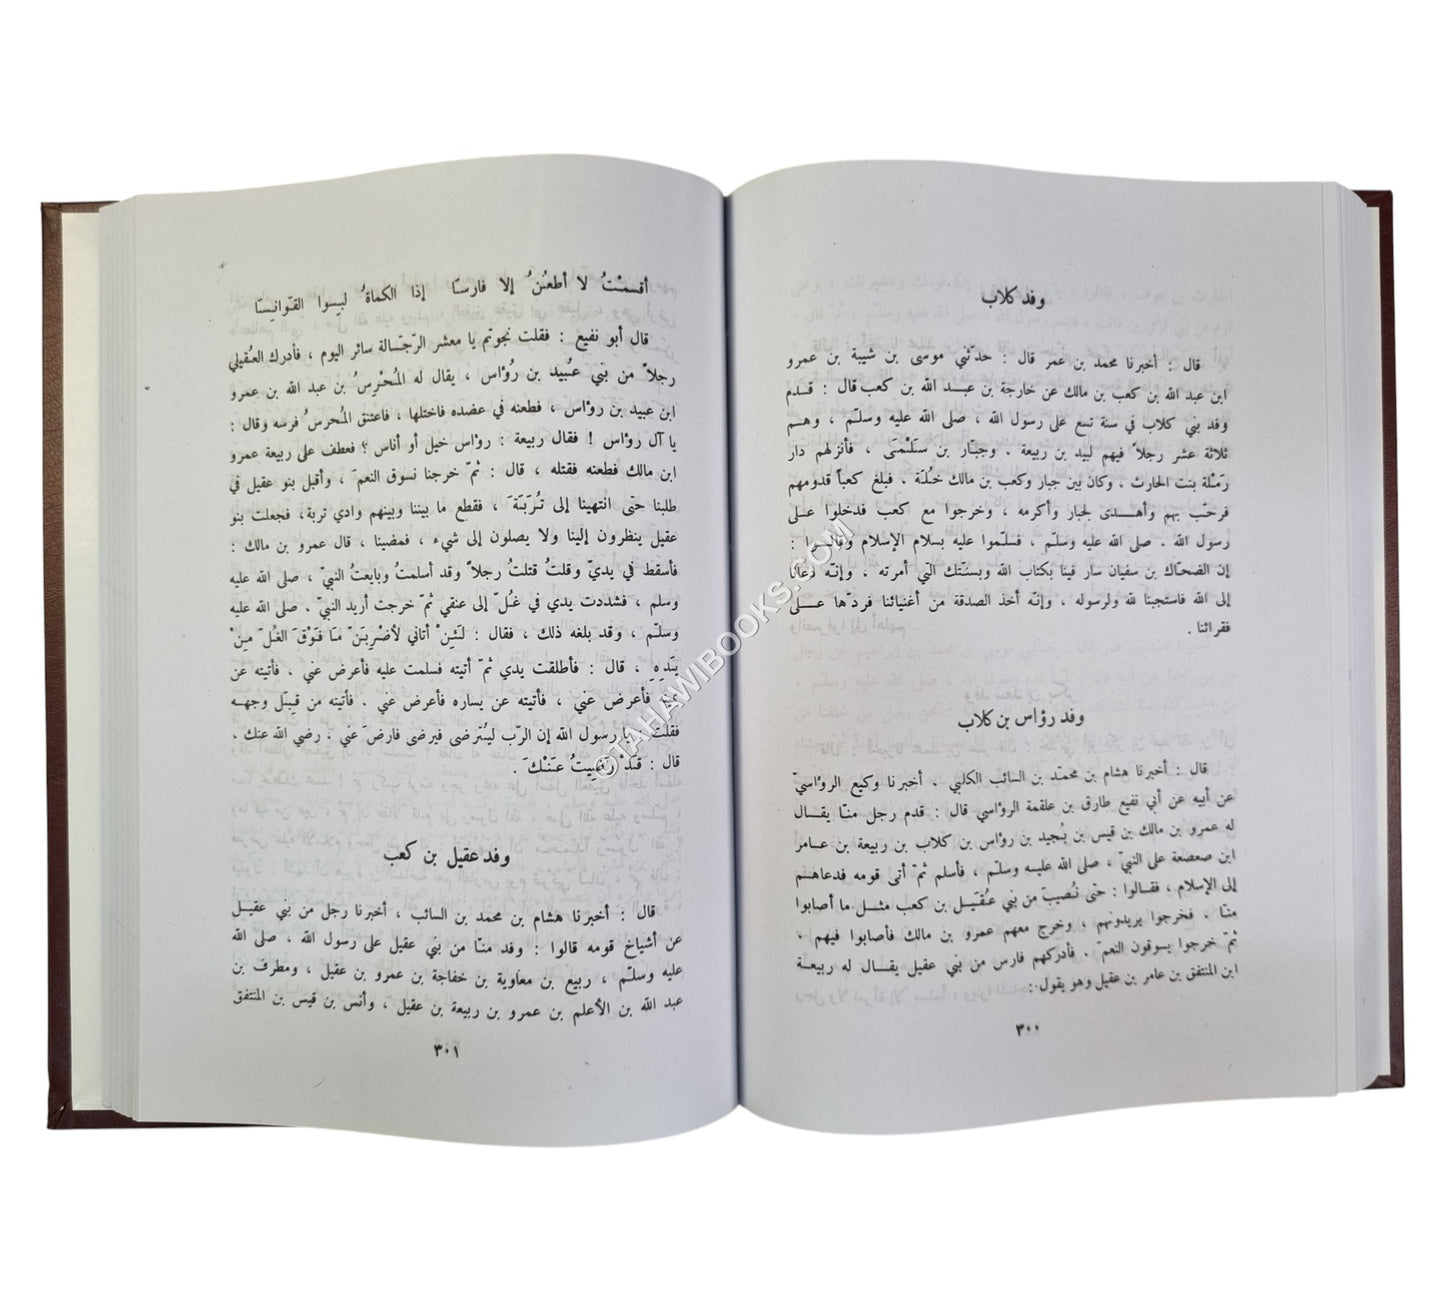 وفد كلاب
قال : أخبرنا محمد بن عمر قال : حدّثني موسى بن شيبة بن عمرو
ابن عبد الله بن كعب بن مالك عن خارجة بن عبـد الله بن كعب قال : قـدم
وفد بني كلاب في سنة تسع على رسول الله ، صلى الله عليه وسلّم ، وهـم
ثلاثة عشر رجلاً فيهم لبيد بن ربيعة . وجبّار بن سَلْمَى ، فأنزلهم دار
رَمْلة بنت الحارث ، وكان بين جبار وكعب بن مالك خُلـّة . فبلغ كعباً قدومهم
فرحّب بهم وأهـدى لجبار وأكرمه ، وخرجوا مع كعب فدخلوا عـلى
رسول الله . صلى الله عليه وسلّم ، فسلّموا عليه بسلام الإسلام وقالـوا :
إن الضحّاك بن سفيان سار فينا بكتاب الله وبسنّتك التي أمرته ، وإنّه دعانا
إلى الله فاستجبنا لله ولرسوله . وإنّه أخذ الصدقة من أغنيائنا فردّها عـلى
فقرائنا .
وفد رؤاس بن كلاب
قال : أخبرنا هشام بن محمّد بن السائب الكلبي . أخبرنا وكيع الرؤاسيّ
عن أبيه عن أبي نفيع طارق بن علقمة الرؤاسي قال : قدم رجل منّا يقـال
له عمرو بن مالك بن قيس بن بُجيد بن رؤاس بن كلاب بن ربيعة بن عـامر
ابن صعصعة على النبيّ ، صلى الله عليـه وسلّم ، فأسلم ثمّ أتى قومه فدعاهـم
إلى الإسلام ، فقـالوا : حتى نُصيبَ من بني عُقَيـل بن كعب مثـل ما أصابوا
منّا . فخرجوا يريدونهم ، وخرج معهم عمرو بن مالك فأصابوا فيهم .
ثمّ خرجوا يسوقون النعمَ . فأدركهم فارس من بني عقيل يقـال له ربيعـة
ابن المنتفق بن عامر بن عقيل وهو يقول :
٣٠٠
أقسمْتُ لا أطعُنُ إلا فارسَا إذا الكماةُ لبِسوا القَوانِسَا
قال أبو نفيع : فقلت نجوتم يا معشر الرجّالة سائر اليوم ، فأدرك العُقيلي
رجلاً من بني عُبيد بن رُؤاس ، يقال له المُحْرِسُ بن عبد الله بن عمرو
ابن عبيد بن رؤاس ، فطعنه في عضده فاختلها ، فاعتنق المُحرسُ فرسه وقال :
يا آل رؤاس ! فقال ربيعة : رؤاس خيل أو أناس ؟ فعطف على ربيعة عمرو
ابن مالك فطعنه فقتله ، قال : ثمّ خرجنا نسوق النعمَ ، وأقبل بنو عقيل في
طلبنا حتّى انتهينا إلى تُرَبَةَ ، فقطع ما بيننا وبينهم وادي تربة، فجعلت بنو
عقيل ينظرون إلينا ولا يصلون إلى شيء ، فمضينا ، قال عمرو بن مالك :
فأسقط في يديّ وقلتُ قتلتُ رجلاً وقد أسلمتُ وبايعتُ النبيّ ، صلى الله عليه
وسلم ، فشددت يدي في غُلّ إلى عنقي ثمّ خرجت أريد النبيّ . صلى الله عليه
وسلّم ، وقد بلغه ذلك ، فقال : لَئِنْ أتاني لأضْرِبَنّ مَا فَوْقَ الغُلّ مِنْ
يَدِهِ ، قال : فأطلقت يدي ثمّ أتيته فسلمت عليه فأعرض عني ، فأتيته عن
يمينه فأعرض عني ، فأتيته عن يساره فأعرض عني . فأتيته من قِبَل وجهـه
فقلت : يا رسول الله إن الرّب ليُترضى فيرضى فارضَ عني . رضي الله عنك .
قال : قَدْ رَضِيتُ عَنْكَ .
وفد عقيل بن كعب
قال : أخبرنا هشام بن محمد بن السائب ، أخبرنا رجل من بني عقيـل
عن أشياخ قومه قالوا : وفد منّا من بني عقيل على رسول الله ، صلى الله
عليه وسلّم ، ربيع بن معاوية بن خفاجة بن عمرو بن عقيل ، ومطرف بن
عبد الله بن الأعلم بن عمرو بن ربيعة بن عقيل ، وأنس بن قيس بن المنتفق
٣٠١
©TAHAWIBOOKS.COM